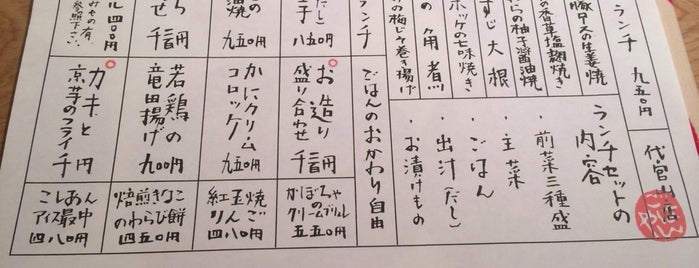 代官山店
ランチ 九五〇円
豚ロースの生姜焼
の香草塩麹焼き
らの柚子醤油焼
すじ大根
ホッケの七味焼き
の角煮
の梅じそ巻き揚げ
ランチ
ランチセットの
内容
・前菜三種盛
・主菜
・ごはん
・出汁(だし)
・お漬けもの
ごはんのおかわり自由
だし)
子 八五〇円
の
焼 九五〇円
ら
せ 千百円
ル四〇〇円
の有
参照下さい
お造り
盛り合わせ 千百円
かにクリーム
コロッケ 九五〇円
若鶏の
竜田揚げ 九〇〇円
カキと
京芋のフライ 千円
かぼちゃの
クリームブリュレ
五五〇円
紅玉焼
りんご
四八〇円
焙煎きなこ
のわらび餅
四五〇円
こしあん
アイス最中
四八〇円